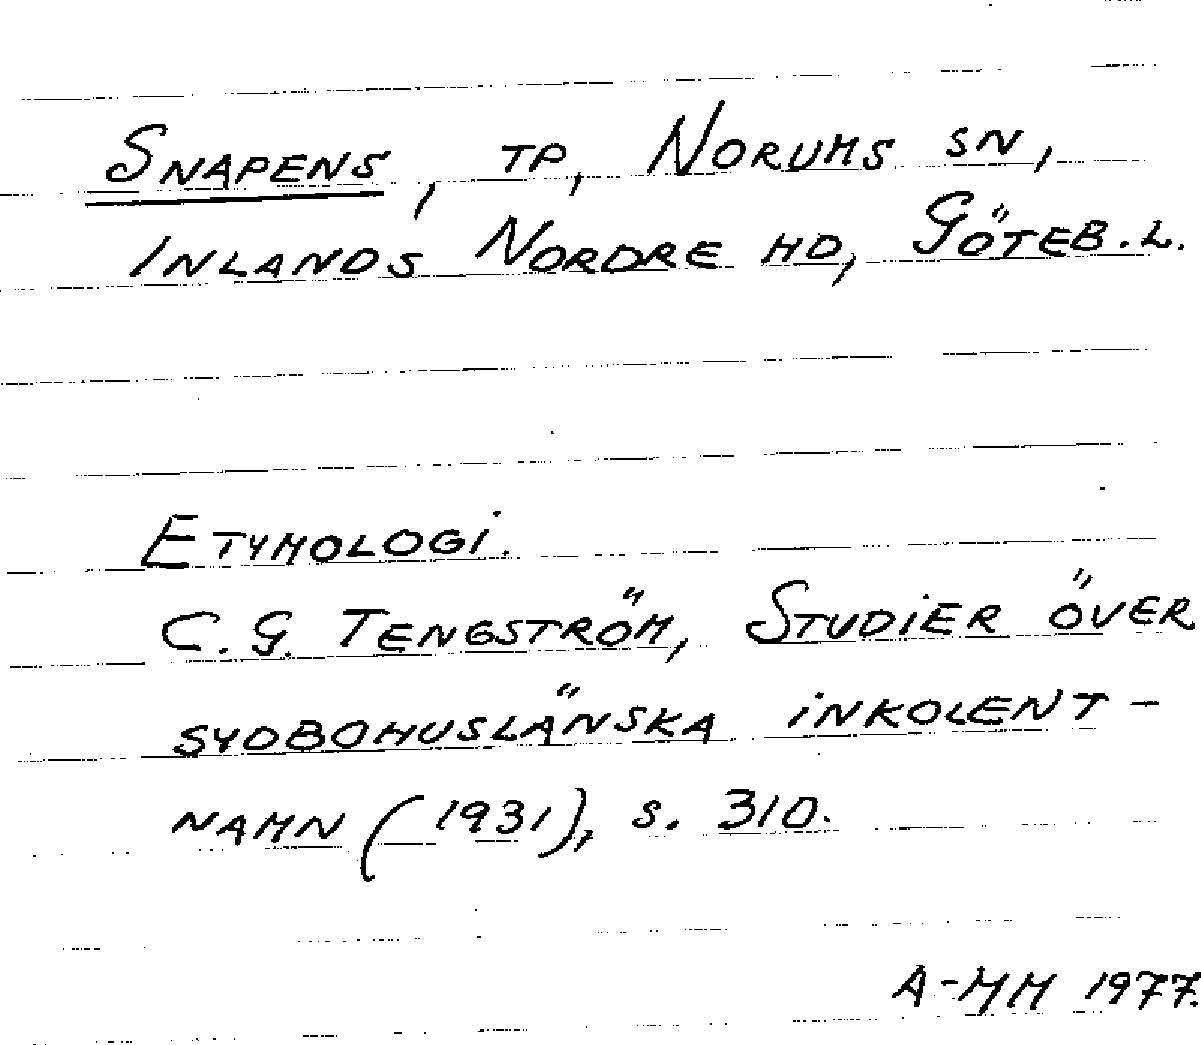 SNAPENS, TP, NORUMS SN,
INLANDS NORDRE HD, GÖTEB.L.
ETYMOLOGI.
C.G. TENGSTRÖM, STUDIER ÖVER
SYDBOHUSLÄNSKA INKOLENT-
NAMN (1931), S. 310.
A-MM 1977.